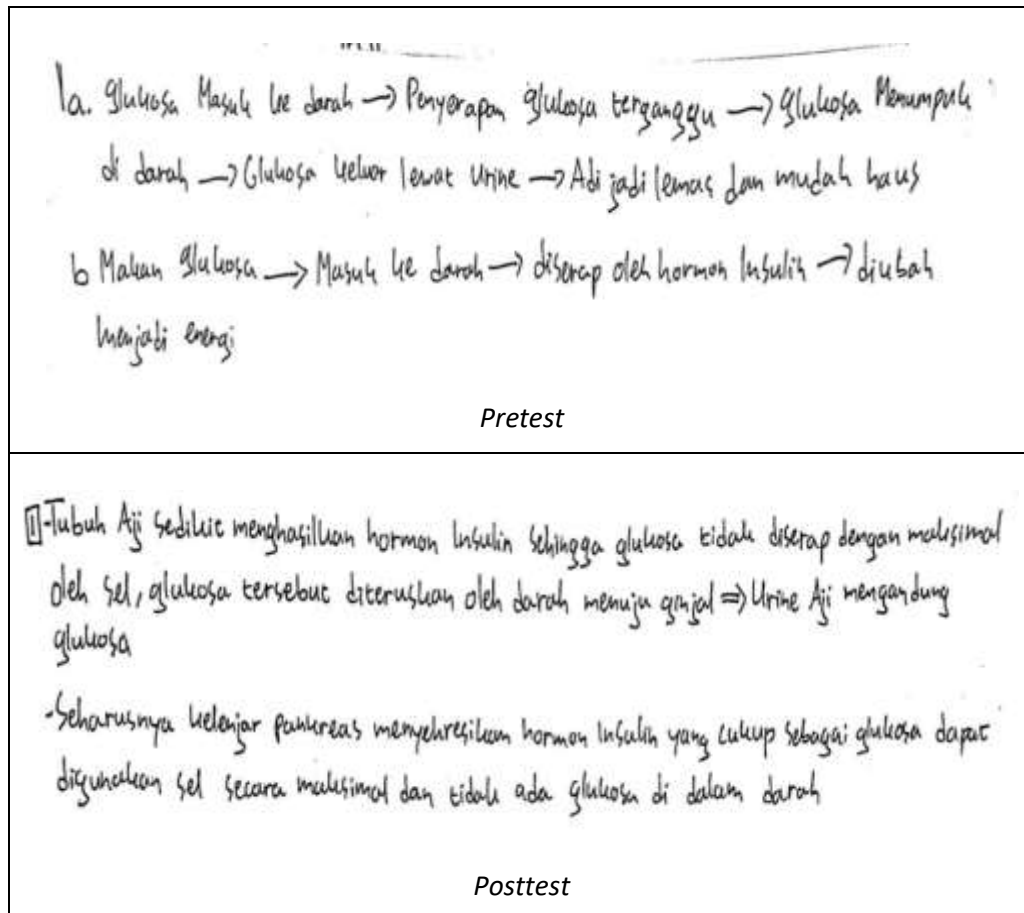 1a. Glukosa Masuk ke darah → Penyerapan glukosa terganggu → Glukosa Menumpuk
di darah → Glukosa keluar lewat Urine → Adi jadi lemas dan mudah haus
b Makan Glukosa → Masuk ke darah → diserap oleh hormon Insulin → diubah
menjadi energi
Pretest
1 -Tubuh Aji sedikit menghasilkan hormon Insulin sehingga glukosa tidak diserap dengan maksimal
oleh sel, glukosa tersebut diteruskan oleh darah menuju ginjal ⇒ Urine Aji mengandung
glukosa
-Seharusnya kelenjar pankreas menyekresikan hormon Insulin yang cukup sebagai glukosa dapat
digunakan sel secara maksimal dan tidak ada glukosa di dalam darah
Posttest